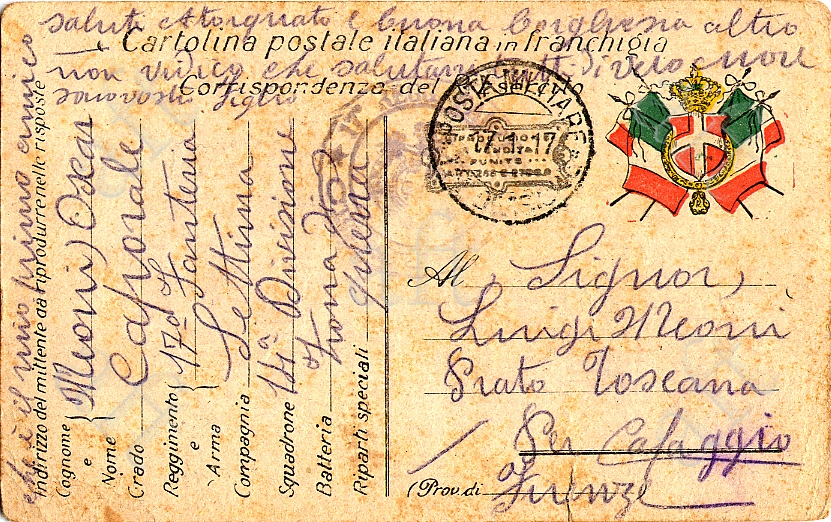 salut Attorguato e buona Borghesia altro
Cartolina postale italiana in franchigia
non vi dico che salutarvi tutti di vero cuore
Corrispondenza del R. Esercito
vostro figlio
POSTA MILITARE
17.1.17
Al Signor,
Luigi Meoni
Prato Toscana
Per Cafaggio
(Prov. di Firenze
che è il mio primo amico
Indirizzo del mittente da riprodurre nelle risposte
Cognome e Nome Meoni Oscar
Grado Caporale
Reggimento e Arma 17º Fanteria
Compagnia Settima
Squadrone 14ª Divisione
Batteria Zona di
Riparti speciali guerra